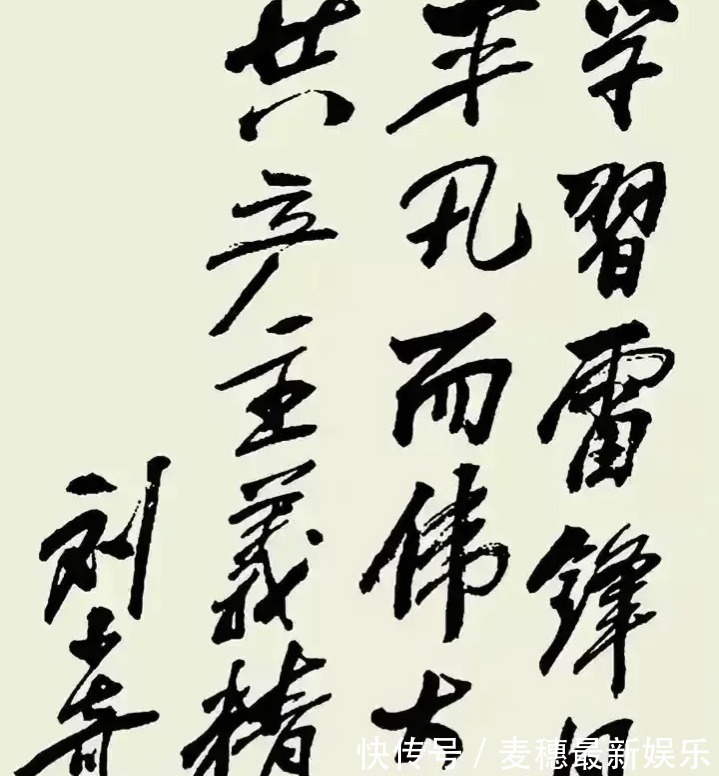 学習雷鋒
平凡而伟大
共产主義精
刘少奇
快传号 / 麦穗最新娱乐